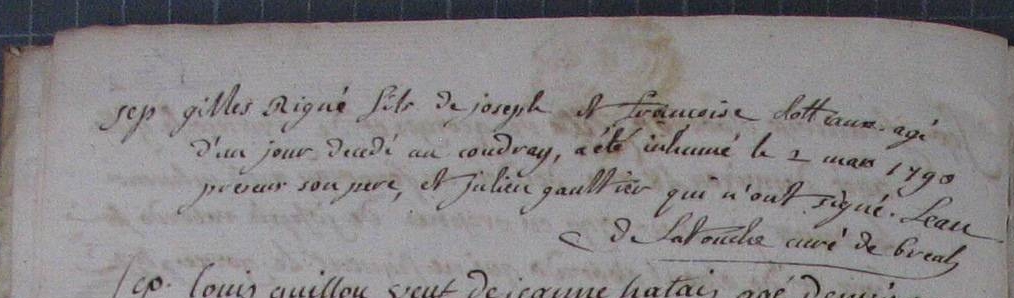 sep gilles Rigué fils de joseph et francoise dottiaux agé
d'un jour decedé au coudray, a été inhumé le 2 mars 1790
presens son pere, et julien gaultier qui n'ont signé. Jean
de Latouche curé de breal
sep. louis guillou veuf de jeanne hatais agé